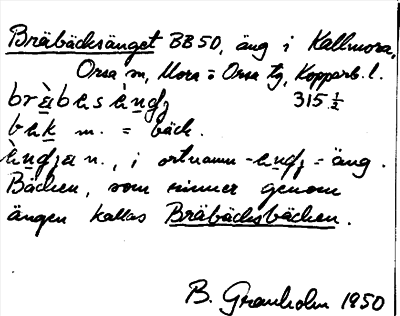 Bräbäcksänget BB50, äng i Kallmora,
Orsa sn, Mora o Orsa tg, Kopparb. l.
315 ½
m. = bäck.
n., i ortnamn = äng.
Bäcken, som rinner genom
ängen kallas Bräbäcksbäcken.
B. Granholm 1950